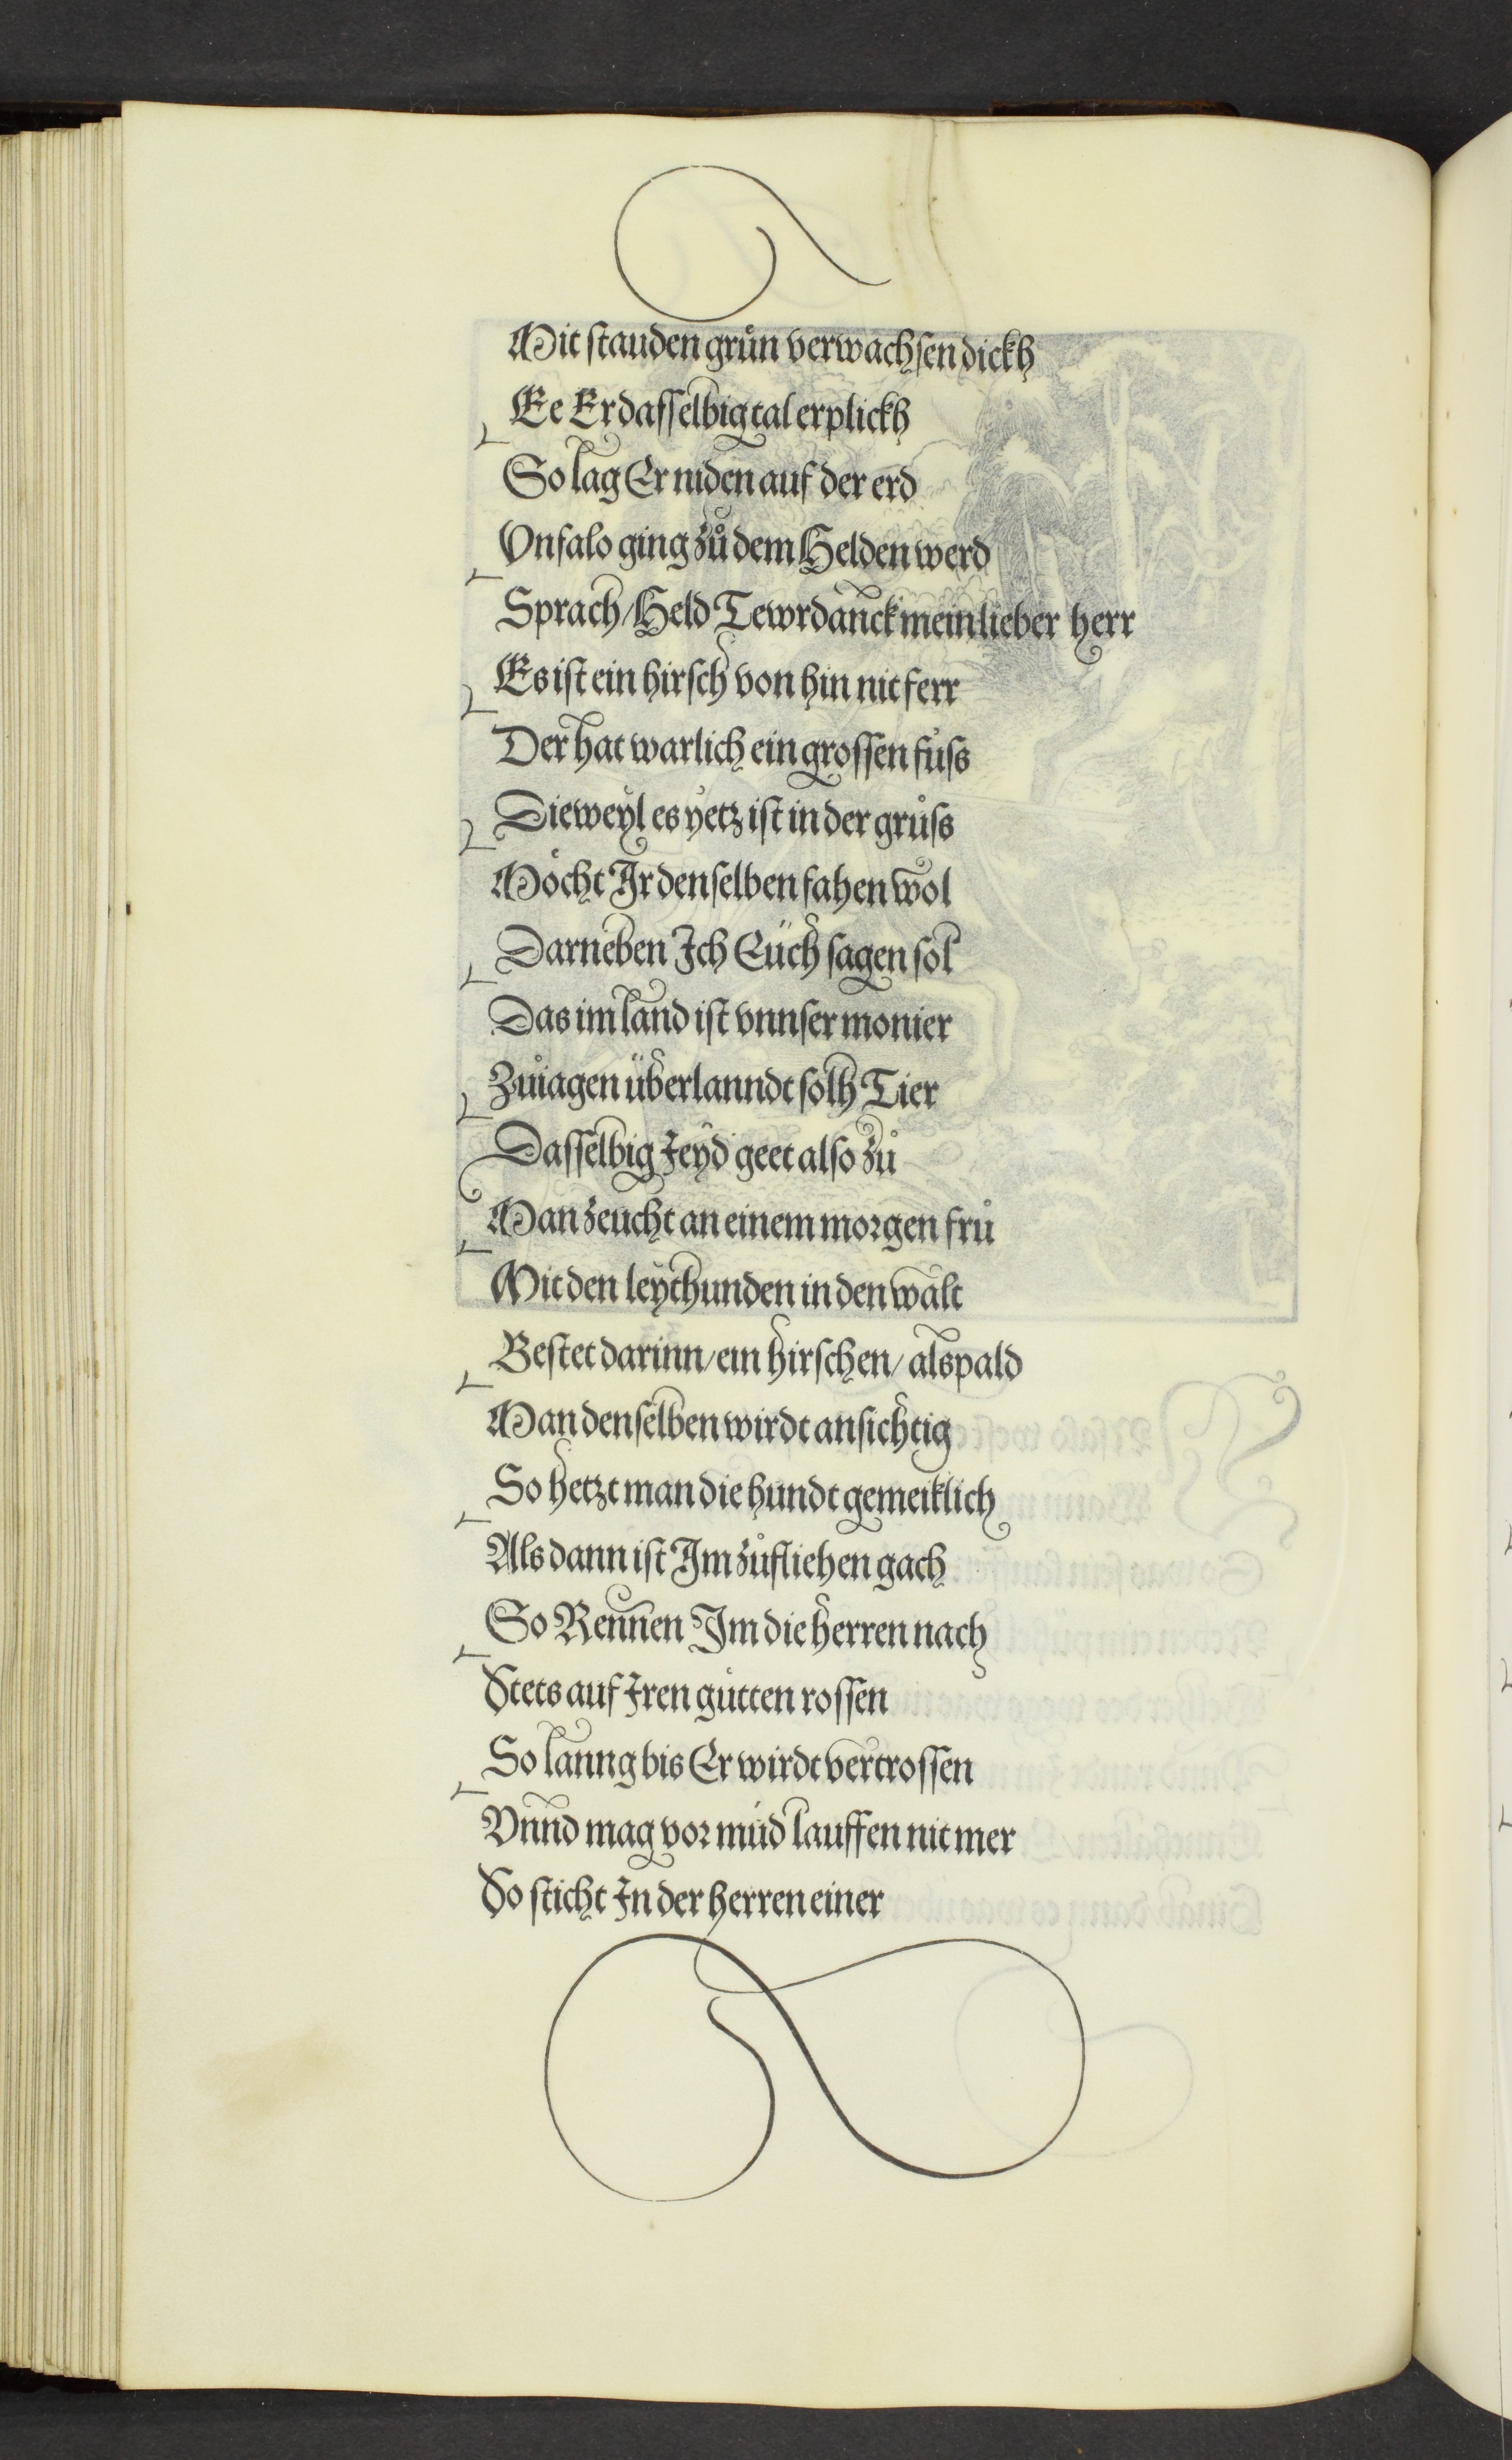 Mit ſtauden grůn verwachſen dickh
Ee Er daſſelbig tal erplickh
So lag Er niden auf der erd
Vnfalo ging zů dem Helden werd
Sprach / Held Tewrdannck mein lieber herr
Es iſt ein hirſch von hin nit ferr
Der hat warlich ein groſſen fůſs
Dieweyl es yetz iſt in der grůſs
Möcht Ir denſelben fahen wol
Darneben Ich Eüch ſagen ſol
Das im land iſt vnnſer monier
Zuiagen überlanndt ſolh Tier
Daſſelbig Jeyd geet alſo zů
Man zeucht an einem moꝛgen frů
Mit den leythunden in den walt
Beſtet darinn / ein hirſchen / alspald
Man denſelben wirdt anſichtig
So hetzt man die hundt gemeiklich
Als dann iſt Im zůfliehen gach
So Rennen Im die herren nach
Stets auf Iren gůtten roſſen
So lanng bis Er wirdt vertroſſen
Vnnd mag voꝛ můd lauffen nit mer
So ſticht In der herren einer